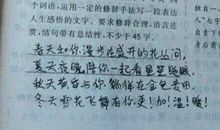 个词语,运用一定的修辞手法写一段表达
人生感悟的文字。要求修辞合理,语言连
贯,结句带有总结性,不少于45字。
春天如你漫步在盛开的花丛间,
夏天夜晚陪你一起看星星眨眼,
秋天黄昏与你徜徉在金色麦田,
冬天雪花飞舞有你,更加温暖!